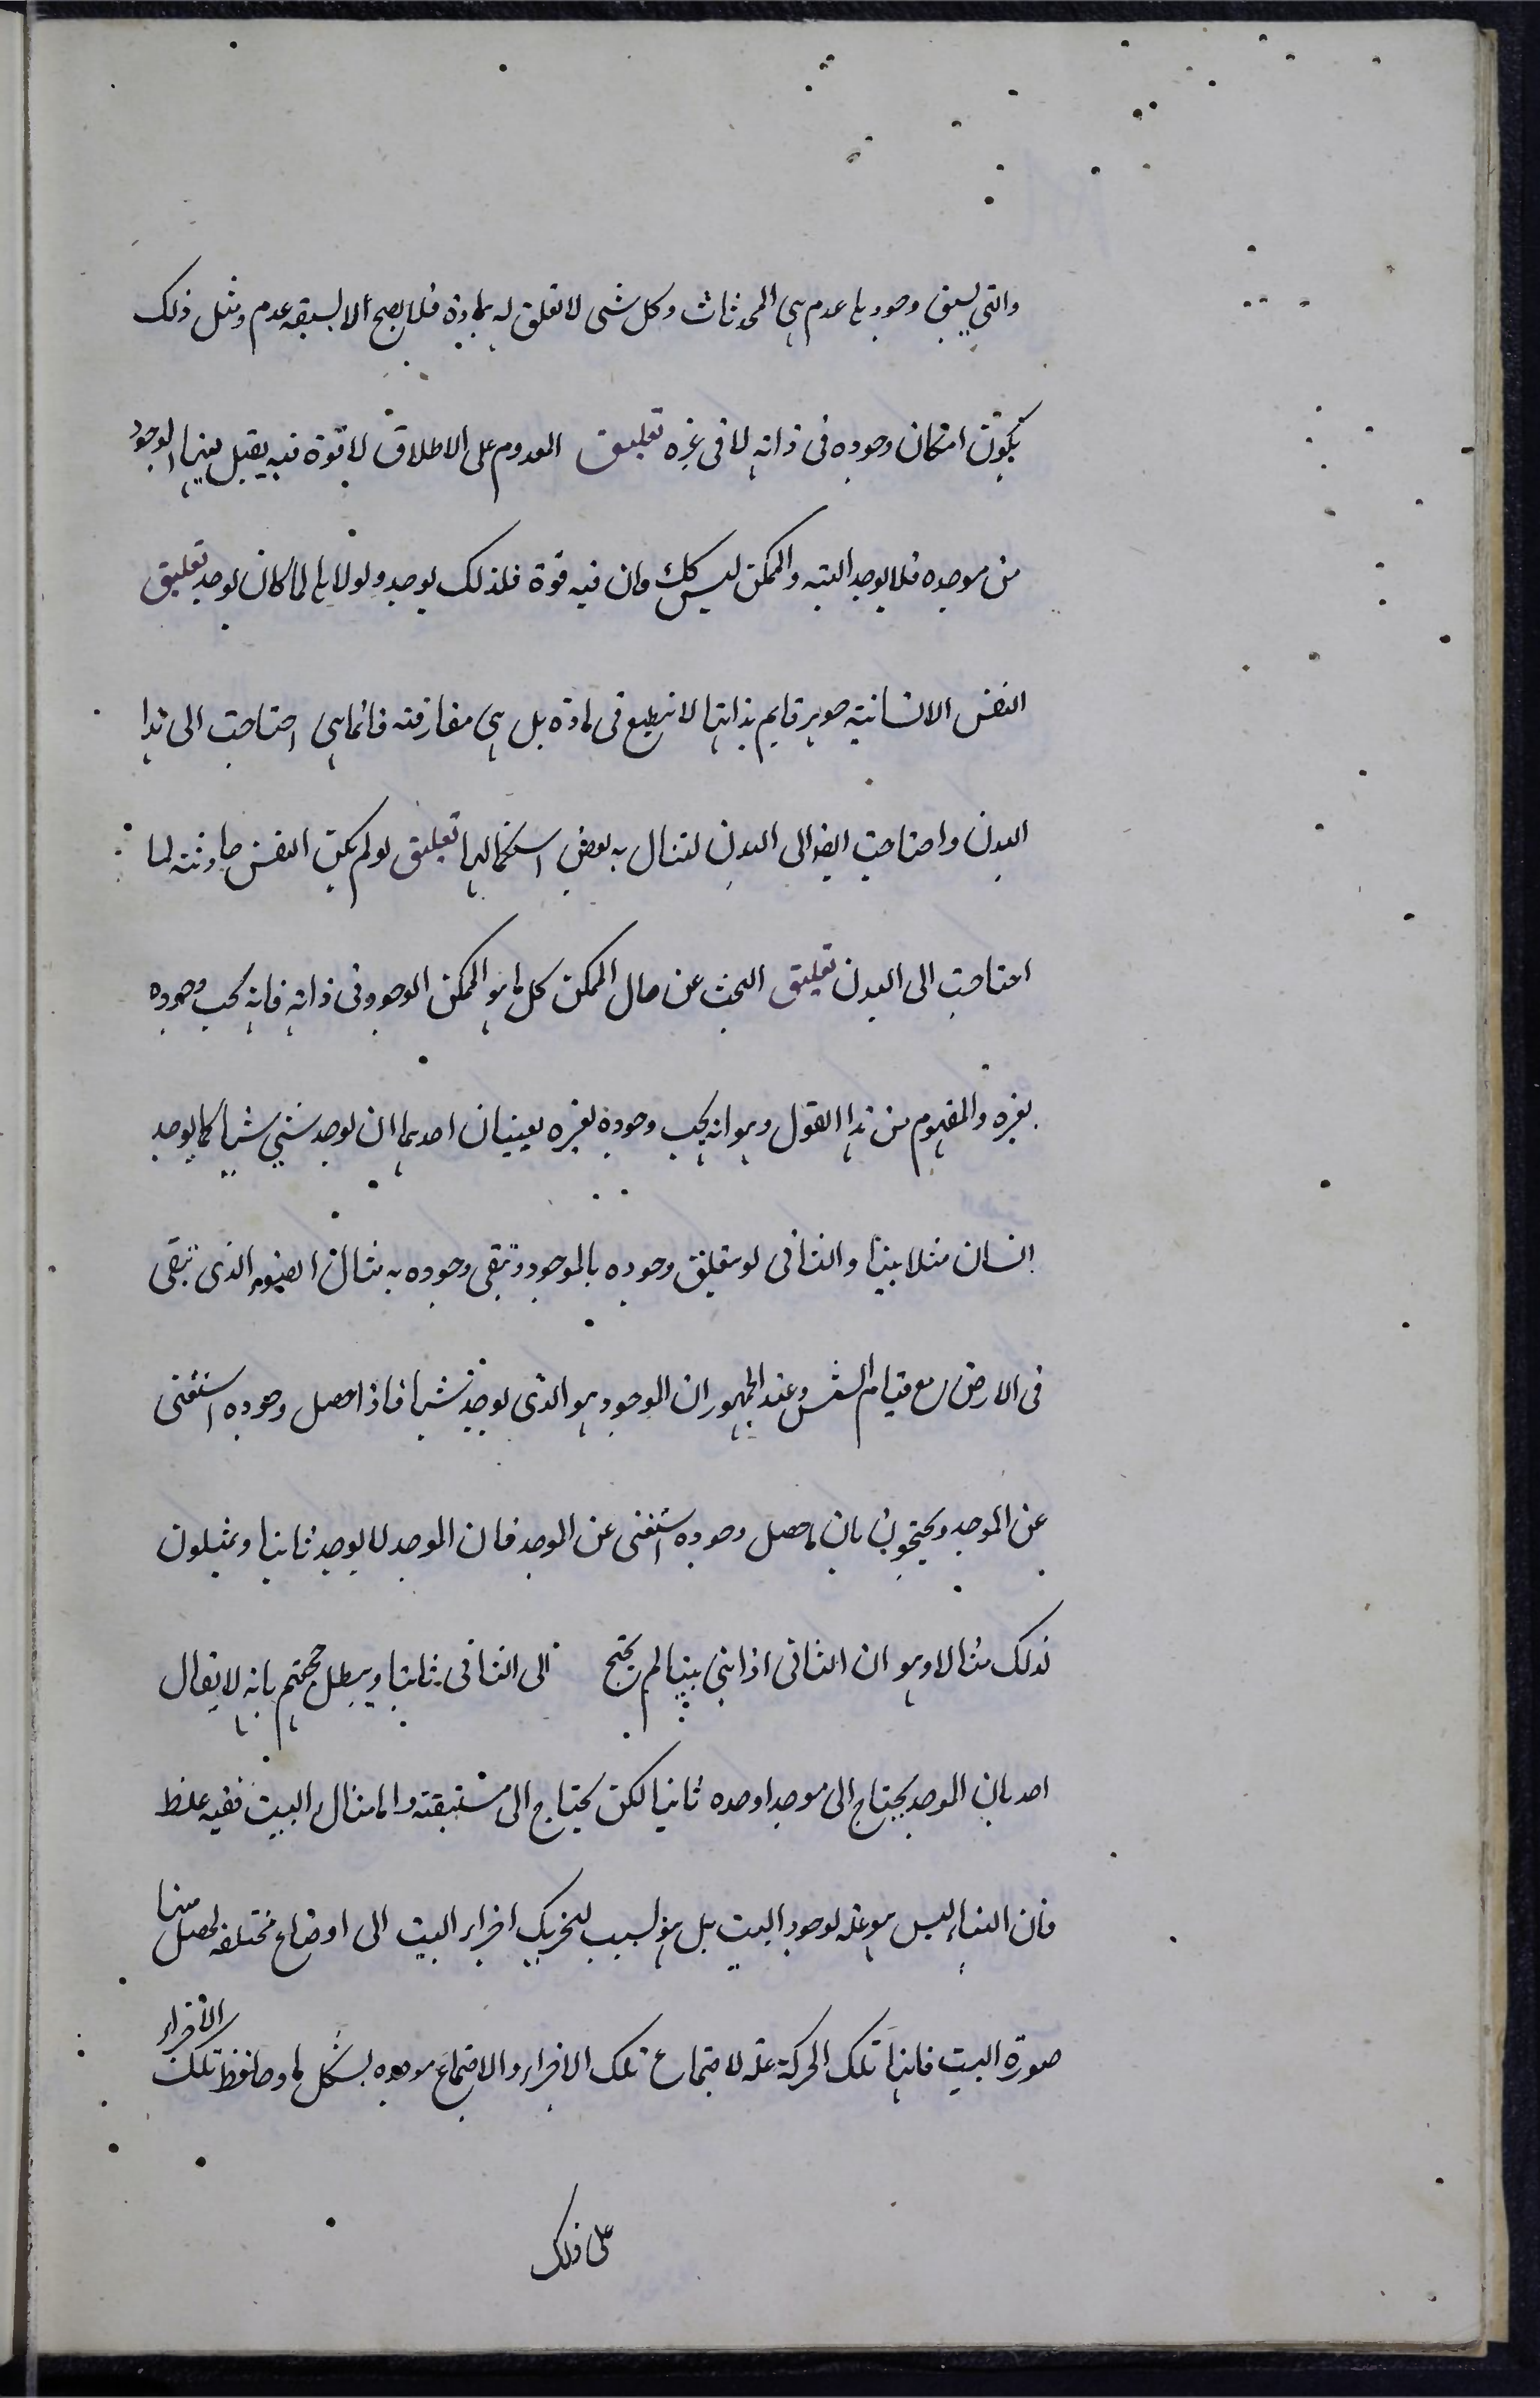 والتى يسبق وجودها عدم هى المحدثات وكل شى لا تعلق له بمادة فلا يصح الا لسبقه عدم ومثل ذلك
يكون امكان وجوده فى ذاته لا فى غيره تعليق المعدوم على الاطلاق لا قوة فيه يقبل بها الوجود
من موجده فلا يوجد البته والممكن ليس كك وان فيه قوة فلذلك يوجد ولولاها لما كان يوجد تعليق
النفس الانسانية جوهر قايم بذاتها لا ينطبع فى مادة بل هى مفارقة فانما هى احتاجت الى هذا
البدن واحتاجت ايضا الى البدن لتنال به بعض استكمالها تعليق لو لم يكن النفس حادثة لما
احتاجت الى البدن تعليق البحث عن حال الممكن كل ما هو الممكن الوجود فى ذاته فانه يجب وجوده
بغيره والمفهوم من هذا القول وهو انه يجب وجوده بغيره يعنيان احدهما ان يوجد شيئ شيئا كما يوجد
انسان مثلا بيتا والثانى لو يتعلق وجوده بالموجود وتبقى وجوده به مثال الضوء الذى تبقى
فى الارض مع قيام الشمس وعند الجمهور ان الموجود هو الذى يوجد شيئا فاذا حصل وجوده استغنى
عن الموجد ويحتجون بان ما حصل وجوده استغنى عن الموجد فان الموجد لا يوجد ثانيا ويمثلون
لذلك مثالا وهو ان الثانى اذا بنى بيتا لم يحتج الى الثانى ثانيا ويبطل حجتهم بانه لا يقال
احد بان الموجد يحتاج الى موجد اوجده ثانيا لكن يحتاج الى مستبقيه واما مثال البيت ففيه غلط
فان البناء ليس هو علة لوجود البيت بل هو لسبب لتحريك اجزاء البيت الى اوضاع مختلفه لحصل منها
صورة البيت فانها تلك الحركة علة لاجتماع تلك الاجزاء والاجتماع موجده لشكل ما وحافظ تلك الاجزاء
على ذلك